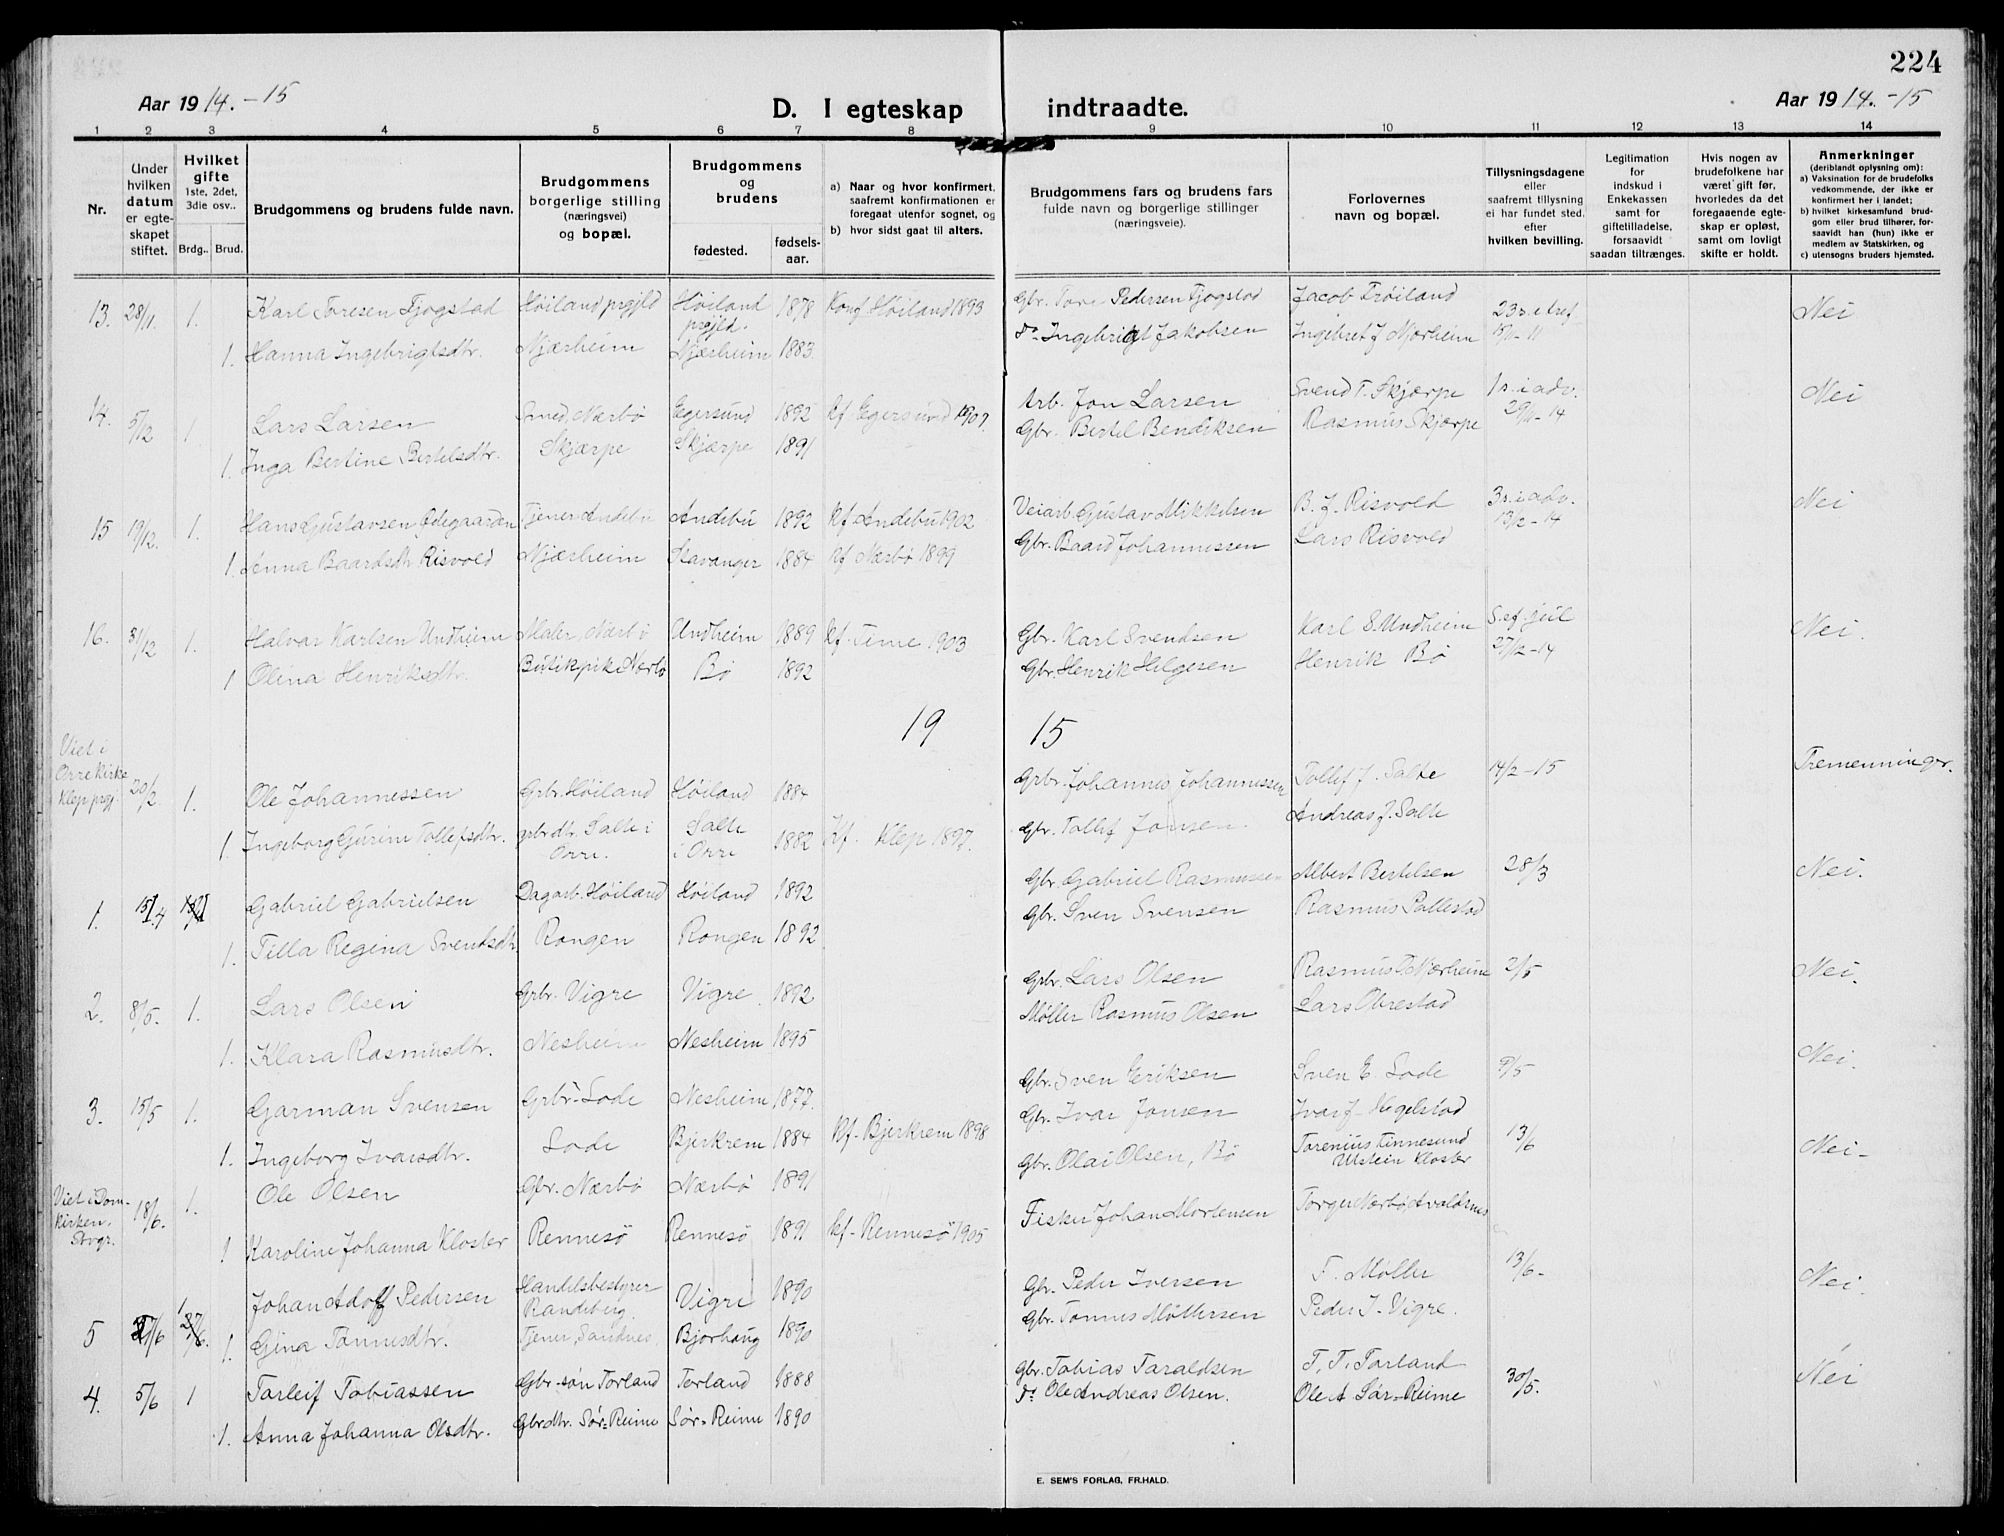 224
Aar 1914.-15
D. I egteskap indtraadte.
Aar 1914.-15
1 2 3 4 5 6 7 8 9 10 11 12 13 14
Nr.
Under hvilken datum er egteskapet stiftet.
Hvilket gifte 1ste, 2det, 3die osv..
Brdg.. Brud.
Brudgommens og brudens fulde navn.
Brudgommens borgerlige stilling (næringsvei) og bopæl.
Brudgommens og brudens
fødested. fødsels-aar.
a) Naar og hvor konfirmert, saafremt konfirmationen er foregaat utenfor sognet, og
b) hvor sidst gaat til alters.
Brudgommens fars og brudens fars fulde navn og borgerlige stillinger (næringsveie).
Forlovernes navn og bopæl.
Tillysningsdagene eller saafremt tillysning ei har fundet sted, efter hvilken bevilling.
Legitimation for indskud i Enkekassen samt for giftetilladelse, forsaavidt saadan tiltrænges.
Hvis nogen av brudefolkene har været gift før, hvorledes da det foregaaende egteskap er opløst, samt om lovligt skifte er holdt.
Anmerkninger (deriblandt oplysning om):
a) Vaksination for de brudefolks vedkommende, der ikke er konfirmert her i landet;
b) hvilket kirkesamfund brudgom eller brud tilhører, forsaavidt han (hun) ikke er medlem av Statskirken, og
c) utensogns bruders hjemsted.
13. 28/11. 1. Karl Toresen Tjøgstad Høiland prgjld Høiland prgjld. 1878 Konf Høiland 1893 Gbr. Tore Pedersen Tjogstad Jacob Frøiland 23 s. e tref Nei
1. Hanna Ingebrigtsdtr. Njærheim Njærheim 1883 Do Ingebrigt Jakobsen Ingebret J Nærheim
14. 5/12 1. Lars Larsen Smed, Nærbø Egersund 1892 Kf Egersund 1907. Arb. Jon Larsen Svend T. Skjærpe 1 s. i adv. 29/11-14 Nei
1. Inga Bertine Bertelsdtr. Skjærpe Skjærpe 1891 Gbr. Bertel Bendiksen Rasmus Skjærpe
15 19/12. 1. Hans Gustavsen Ødegaarden Tjener Andebu Andebu 1892 Kf Andebu 1902 Veiarb. Gustav Mikkelsen B. J. Risvold 3 s. i adv. 13/12-14 Nei
1. Jenna Baardsdtr Risvold Njærheim Stavanger 1884 Kf Nærbø 1899 Gbr. Baard Johannessen Lars Risvold
16. 31/12 1. Halvar Karlsen Undheim Maler, Nærbø Undheim 1889 Kf. Time 1903 Gbr. Karl Svendsen Karl S. Undheim S. ef. jul 27/12-14 Nei.
1 Olina Henriksdtr. Butikpike Nærbø Bø 1892 Gbr. Henrik Helgesen Henrik Bø
1915
Viet i Orre kirke Klep prgj. 20/2. 1. Ole Johannessen Grbr. Høiland Høiland 1884 Grbr. Johannes Johannessen Tollef J. Salte 14/2-15 Tremenninger.
1. Ingeborg Gurine Tollefsdtr. grbrdtr. Salte i Orre. Salte i Orre 1882 Kf. Klep 1897. Gbr. Tollef Jonsen. Andreas J. Salte
1. 15/4 Gabriel Gabrielsen Dagarb. Høiland Høiland 1892 Gbr. Gabriel Rasmussen Albert Bertelsen 28/3 Nei.
1. Tilla Regina Svendsdtr Rongen Rongen 1892 Gbr. Sven Svensen Rasmus Pallestad
2. 8/5. 1. Lars Olsen Grbr. Vigre Vigre 1892 Gbr. Lars Olsen Rasmus T. Nærheim 2/5 Nei.
1. Klara Rasmusdtr. Nesheim Nesheim 1895 Møller Rasmus Olsen Lars Obrestad
3. 15/5 1. Garman Svensen Grbr. Sode Nesheim 1877. Gbr. Sven Eriksen Sven E. Sode 9/5 Nei.
1. Ingeborg Ivarsdtr. Sode Bjerkrem 1884 Kf. Bjerkrem 1898 Gbr. Ivar Jonsen Ivar J. Hegelstad
Viet i Domkirken, Stvgr. 18/6. 1. Ole Olsen Gbr. Nærbø Nærbø 1891 Gbr. Olai Olsen, Bø Utstein Kloster 13/6 Nei-
1 Karoline Johanna Kloster Rennesö Rennesö 1891 kf-Rennesö 1905 Fisker Johan Mortensen Torger Nærbø Avaldsnes
5 1 Johan Adolf Pedersen Handelsbestyrer Randeberg Vigre 1890 Gbr. Peder Iversen T. Møller 13/6- Nei
1. Gina Tønnesdtr. Tjener, Sandnes. Bjorhaug 1890 Gbr. Tønnes Møllersen Peder I. Vigre.
4. 5/6 1 Tarleif Tobiassen Gbr.-søn Torland Torland 1888 Gbr. Tobias Taraldsen T. T. Torland 30/5. Nei
1. Anna Johanna Olsdtr. Gbrdtr. Sør-Reime Sør-Reime 1890 Do Ole Andreas Olsen. Ole A Sør-Reime
E. SEM'S FORLAG, FR.HALD.